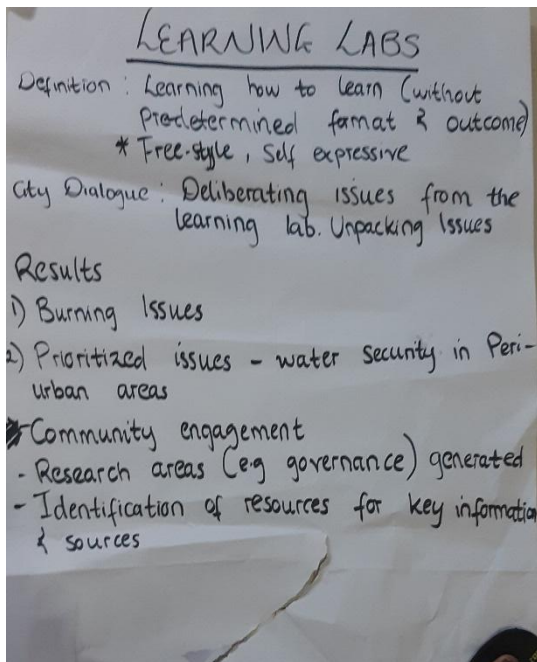 LEARNING LABS
Definition : Learning how to learn (without
predetermined format & outcome)
* Free-style, Self expressive
City Dialogue : Deliberating issues from the
learning lab. Unpacking Issues
Results
1) Burning Issues
2) Prioritized issues - water security in Peri-
urban areas
Community engagement
- Research areas (e.g governance) generated
- Identification of resources for key information
& sources